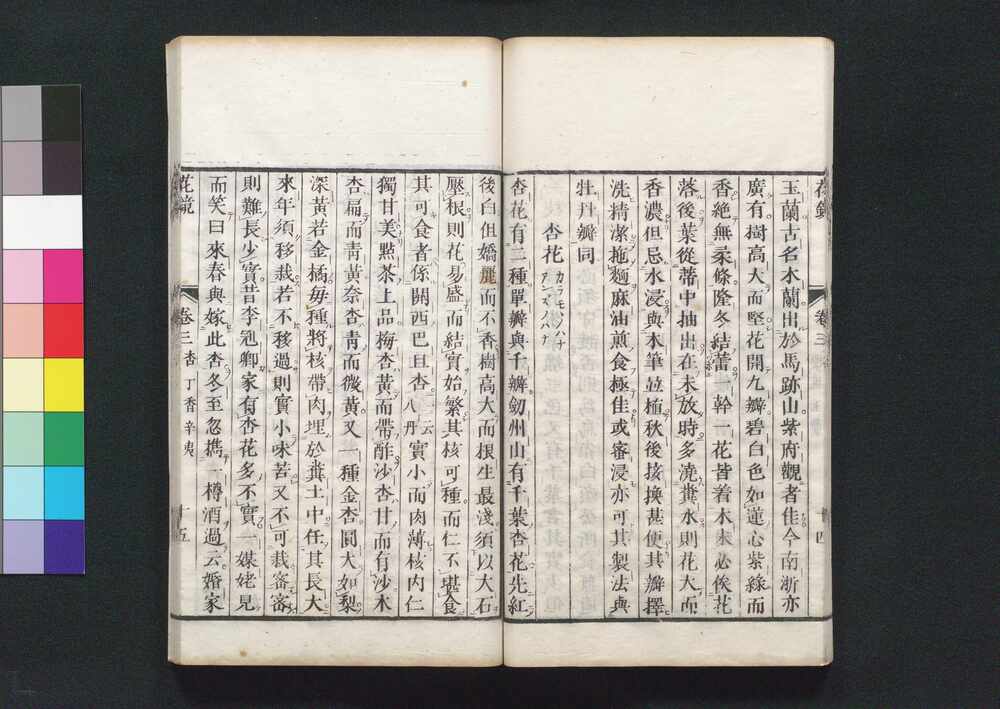 玉蘭古名木蘭出於馬跡山紫府觀者佳今南浙亦
廣有樹高大而堅花開九瓣碧白色如蓮心紫綠而
香絶無柔條隆冬結蕾一幹一花皆着木末必俟花
落後葉從蒂中抽出在未放時多澆糞水則花大而
香濃但忌水浸與木筆並植秋後接換甚便其瓣擇
洗精潔拖麵麻油煎食極佳或蜜浸亦可其製法與
牡丹瓣同
杏花 カラモヽノハナ アンズノハナ
杏花有二種單瓣與千瓣劒州山有千葉杏花先紅
後白但嬌麗而不香樹高大而根生最淺須以大石
壓根則花易盛而結實始繁其核可種而仁不堪食
其可食者係關西巴旦杏 一云八丹 實小而肉薄核内仁
獨甘美點茶上品梅杏黃而帶酢沙杏甘而有沙木
杏扁而靑黃奈杏靑而微黃又一種金杏圓大如梨
深黃若金橘每種將核帶肉埋於糞土中任其長大
來年須移栽若不移過則實小味苦又不可栽密密
則難長少實昔李冠卿家有杏花多不實一媒姥見
而笑曰來春與嫁此杏冬至忽攜一樽酒過云婚家
花鏡 卷三 杏 丁香 辛夷 十五